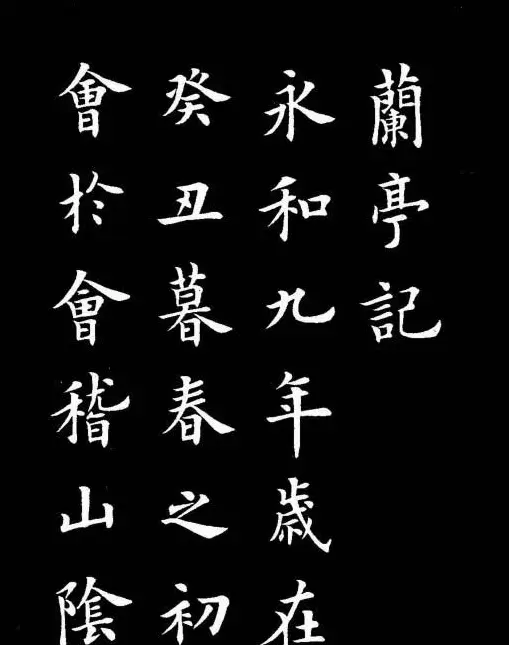 蘭亭記
永和九年歲在
癸丑暮春之初
會於會稽山陰